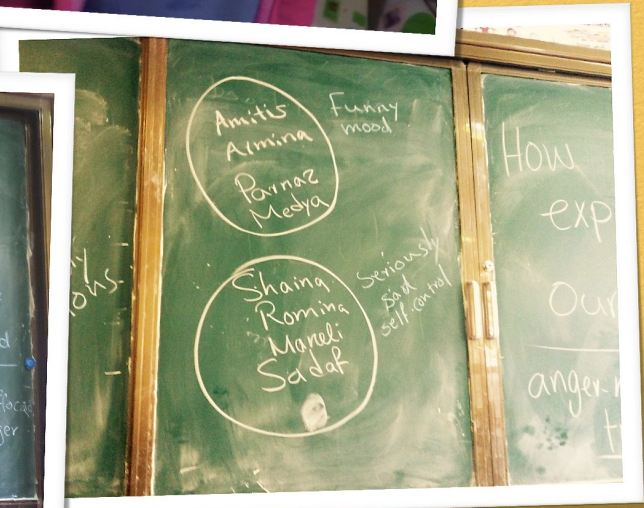 Amitis
Armina
Parnaz
Medya
Funny
mood
Shaina
Romina
Maneli
Sadaf
Seriously
sad
self-control
How
exp
our
anger-